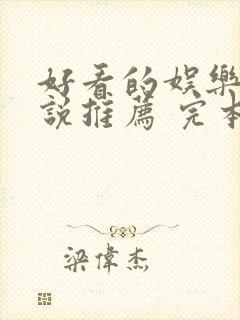 好看的娛樂
說推薦 完本
梁偉杰